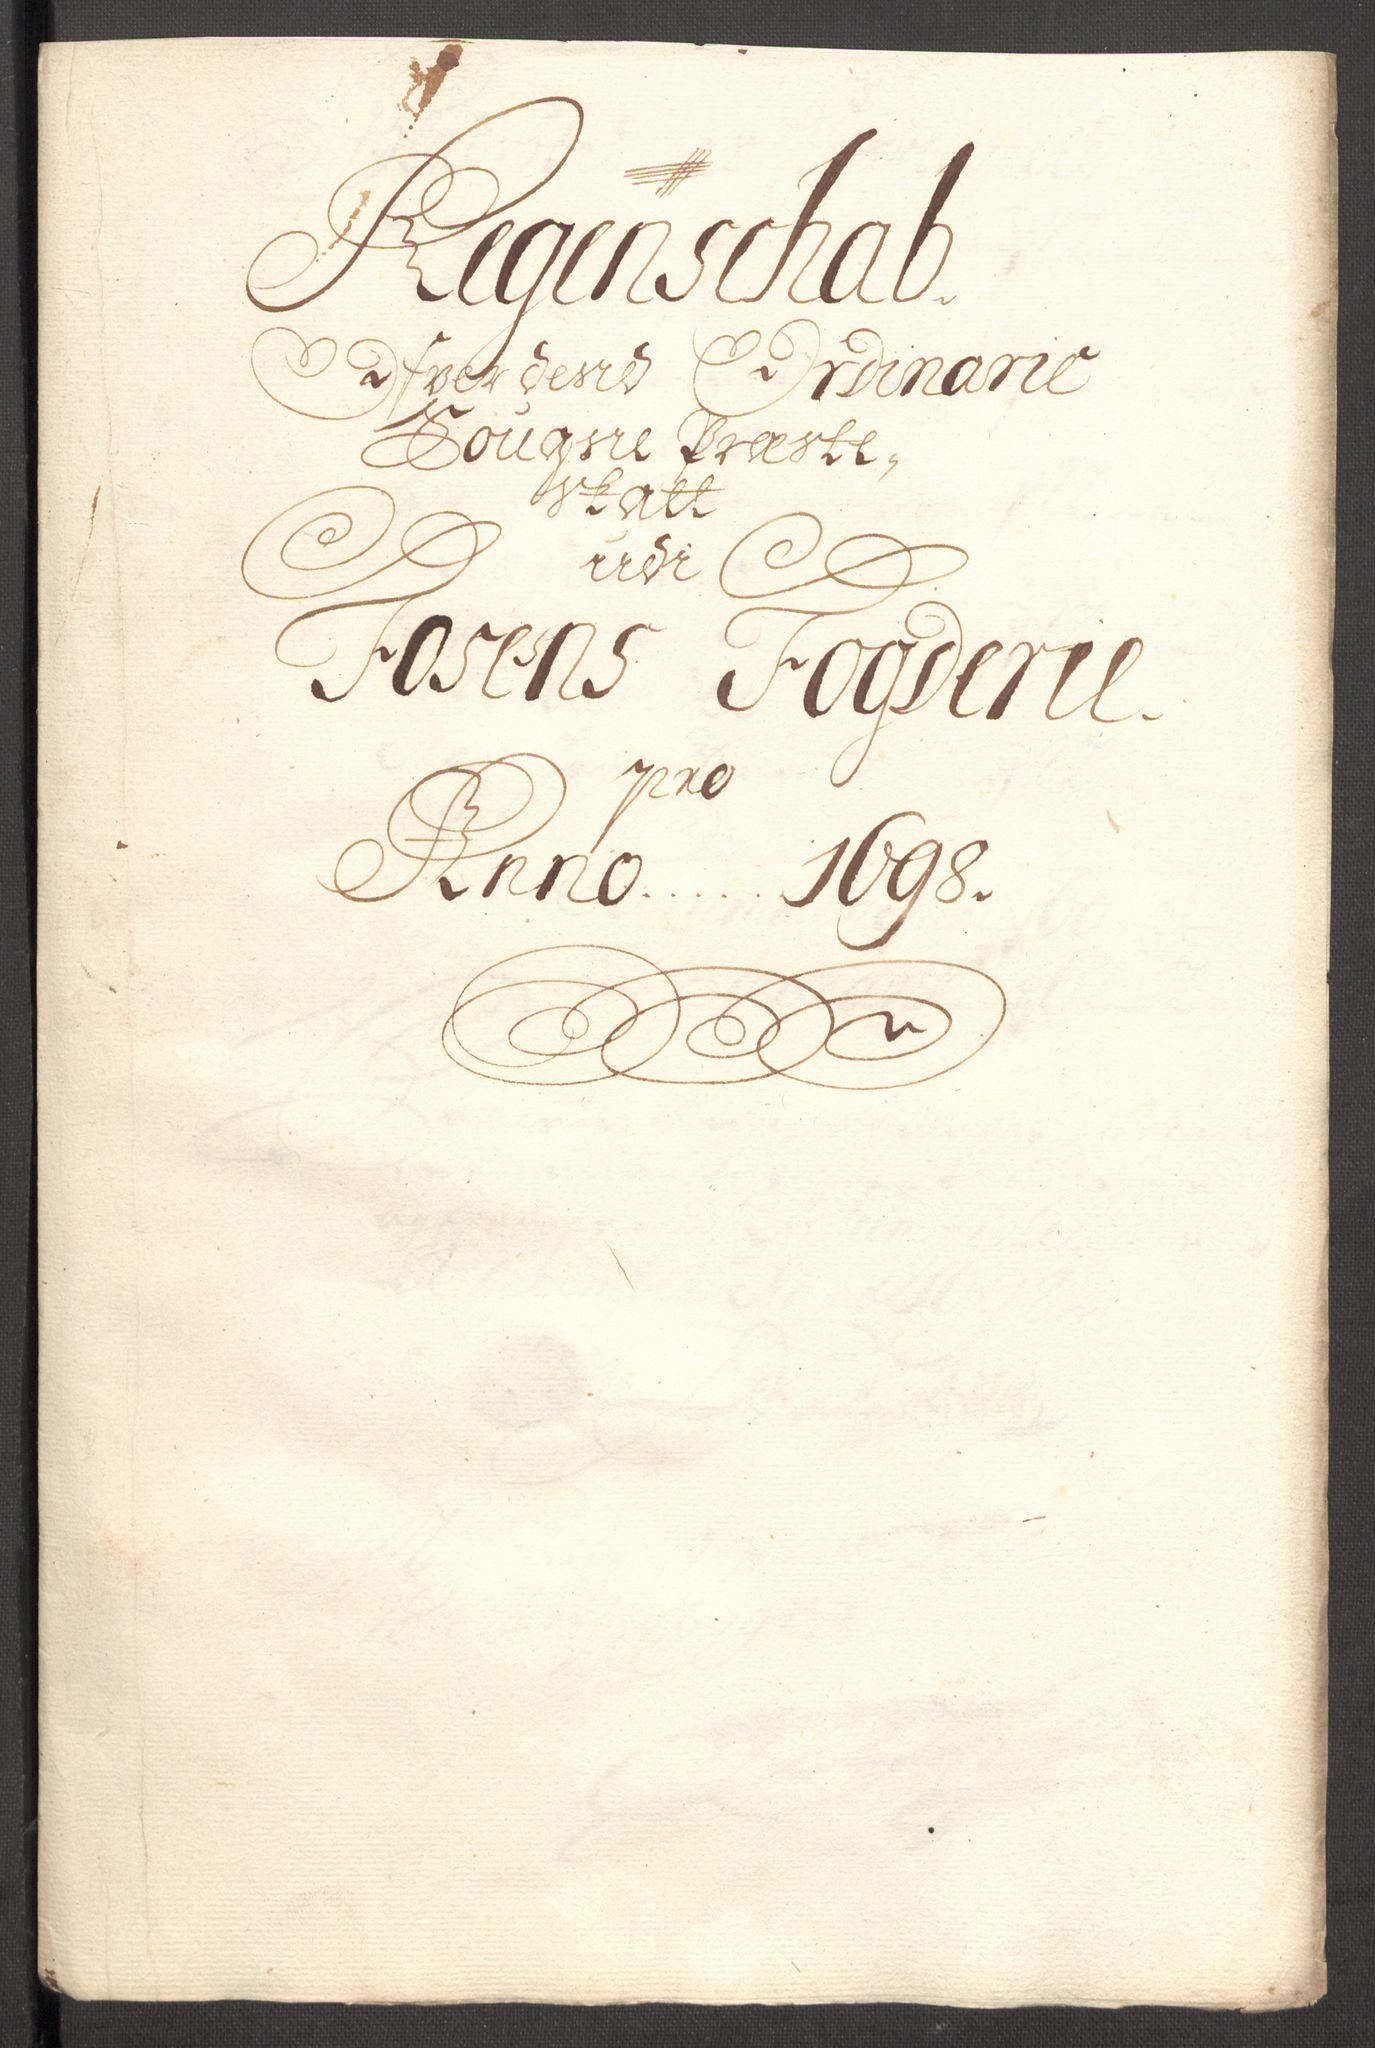 Regenschab.
Ofver dend Ordinarie
Sougne Præste,
skatt
udi
Fosens Fogderie.
pro
Anno..... 1698.